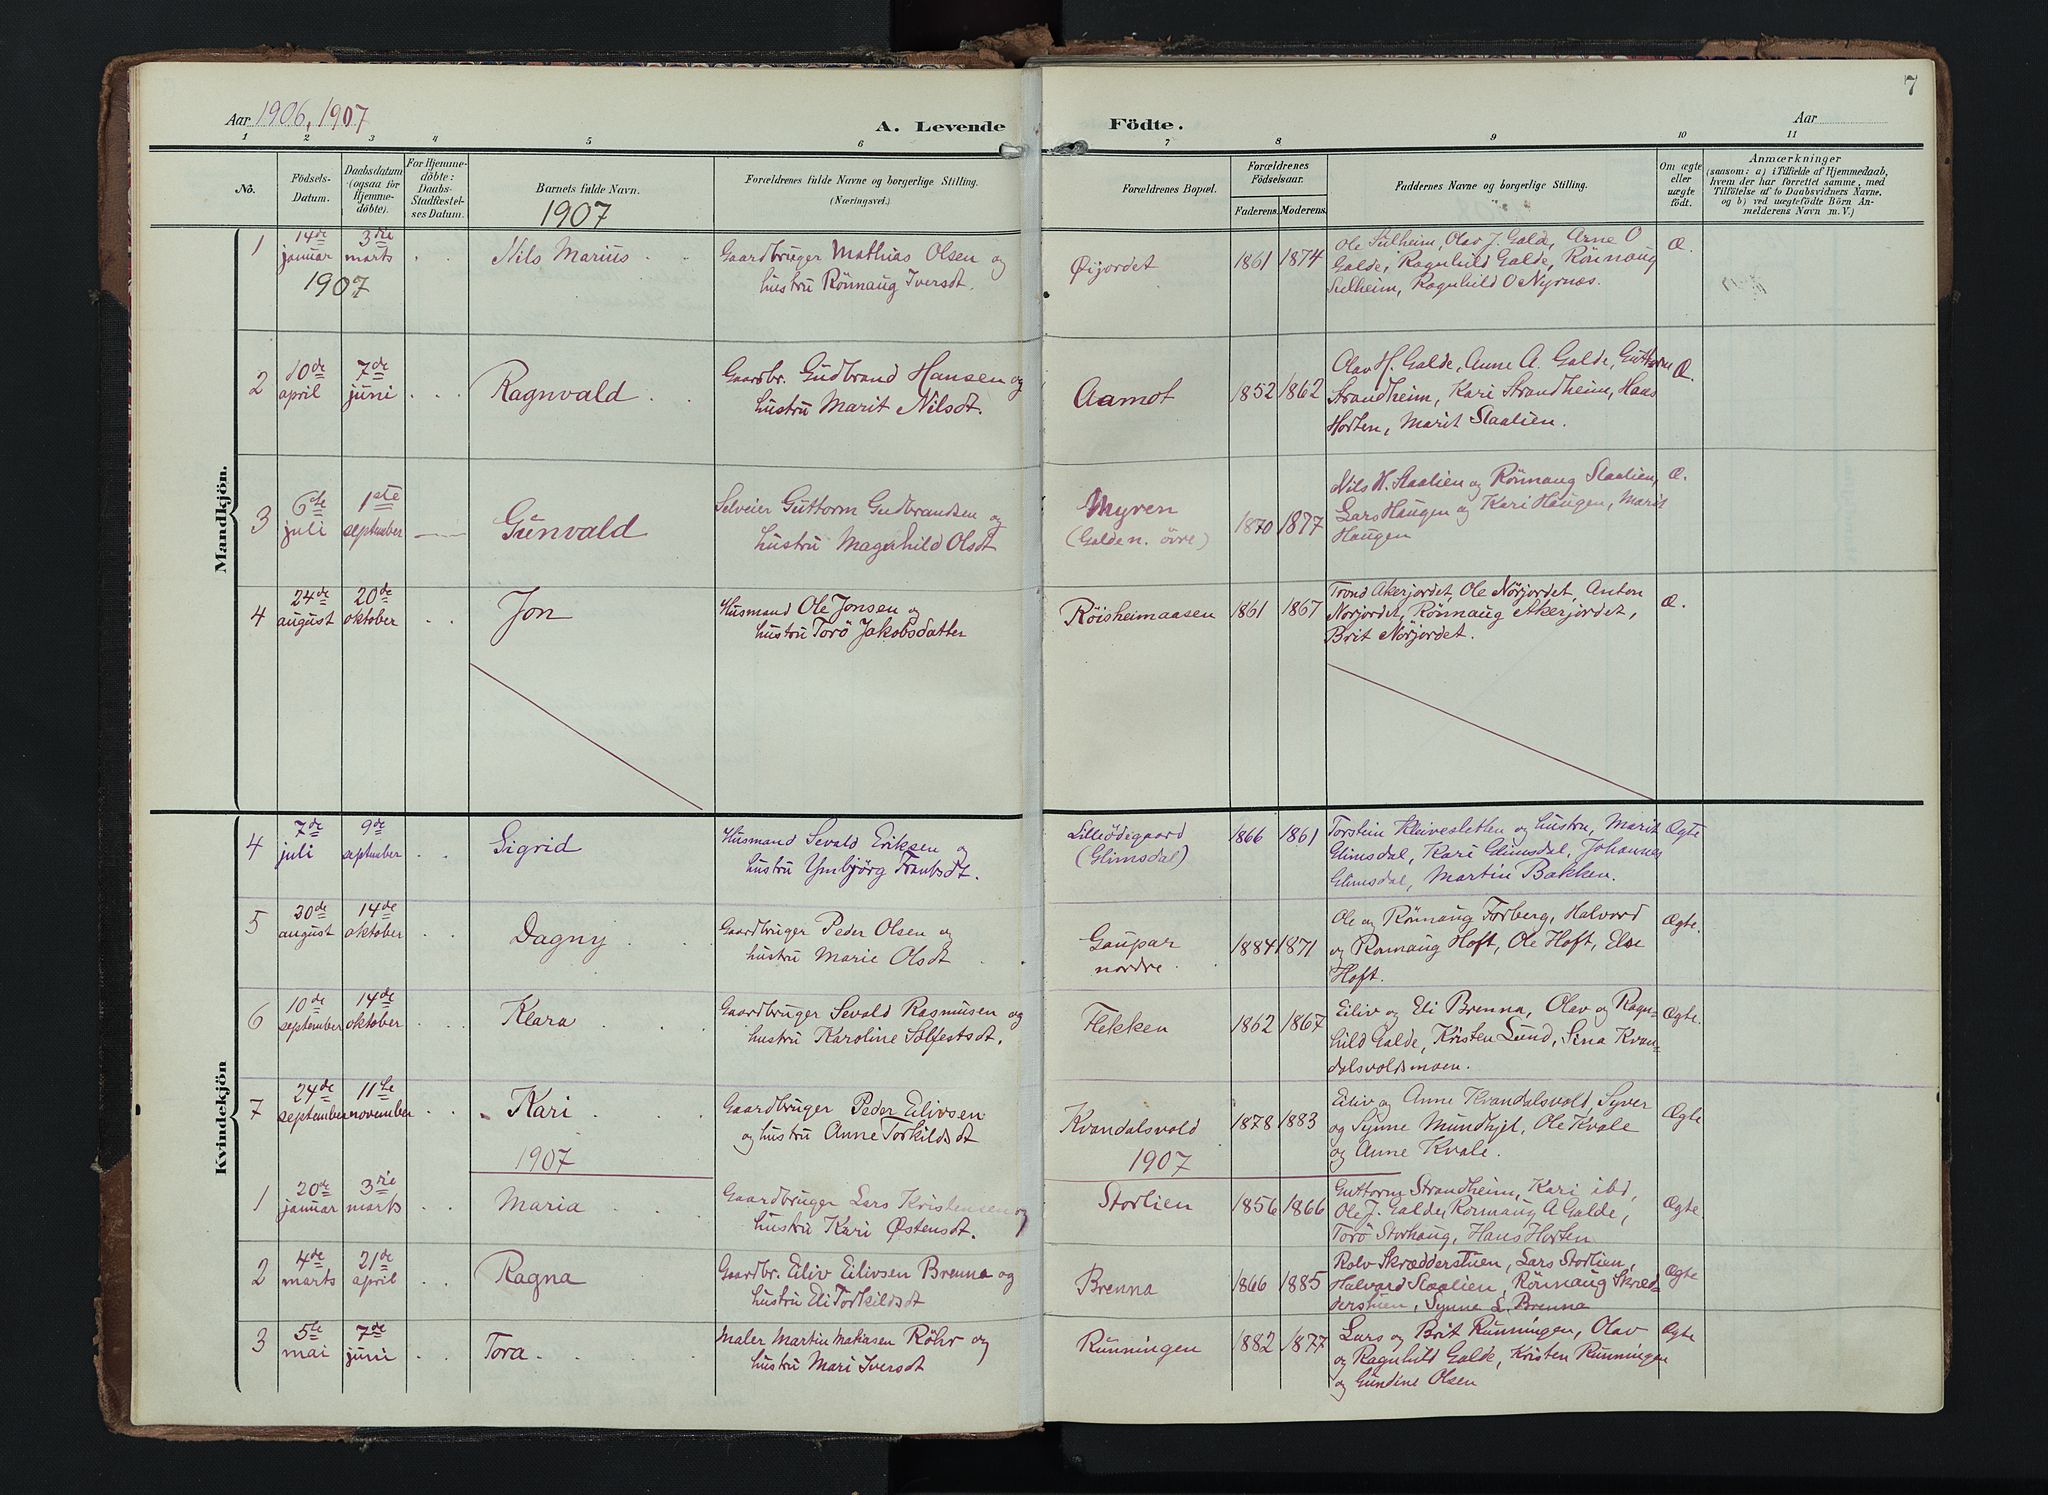 7
Aar 1906, 1907
A. Levende Födte.
Aar
1 2 3 4 5 6 7 8 9 10 11
No.
Födsels-
Datum.
Daabsdatum
(ogsaa for
Hjemme-
döbte).
For Hjemme-
döbte:
Daabs-
Stadfæstel-
ses Datum.
Barnets fulde Navn.
1907
Forældrenes fulde Navne og borgerlige Stilling.
(Næringsvei.)
Forældrenes Bopæl.
Forældrenes
Födselsaar.
Faderens. Moderens.
Faddernes Navne og borgerlige Stilling.
Om ægte
eller
uægte
födt.
Anmærkninger
(saasom: a) i Tilfælde af Hjemmedaab,
hvem der har forrettet samme, med
Tilföielse af to Daabsvidners Navne,
og b) ved uægtefödte Börn An-
melderens Navn m. V.)
Mandkjön.
1
14de
januar
1907
3die
marts
Nils Marius
Gaardbruger Mathias Olsen og
hustru Rönnaug Iversdt.
Øijordet
1861 1874
Ole Sulheim, Olav J. Galde, Arne O
Galde, Ragnhild Galde, Rönnaug
Sulheim, Ragnhild O Nyrnæs.
Æ.
2
10de
april
7de
juni
Ragnvald
Gaardbr. Gudbrand Hansen og
hustru Marit Nilsdt.
Aamot
1852 1862
Olav H. Galde, Anne A. Galde, Guttorm
Strandheim, Kari Strandheim, Hans
Horten, Marit Slaalien.
Æ.
3
6te
juli
1ste
september
Gunvald
Selveier Guttorm Gudbrandsen og
hustru Magnhild Olsdt
Myren
(Galde n. övre)
1870 1877
Nils H. Slaalien og Rönnaug Slaalien,
Lars Haugen og Kari Haugen, Marit
Haugen
Æ.
4
24de
august
20de
oktober
Jon
Husmand Ole Jonsen og
hustru Torö Jakobsdatter
Röisheimaasen
1861 1867
Trond Akerjordet, Ole Nörjordet, Anton
Norjordet, Rönnaug Akerjordet,
Brit Nörjordet.
Æ.
Kvindekjön
4
7de
juli
9de
september
Sigrid
Husmand Sevald Eriksen og
hustru Ymbjörg Trantsdt.
Lilleödegaard
(Glimsdal)
1866 1861
Torstein Kleivesletten og hustru, Marit
Glimsdal, Kari Glimsdal, Johannes
Glimsdal, Martin Bakken.
Ægte
5
30de
august
14de
oktober
Dagny
Gaardbruger Peder Olsen og
hustru Marie Olsdt
Gaupar
nordre
1884 1871
Ole og Rönnaug Forberg, Halvord
og Rönnaug Hoft, Ole Hoft, Else
Hoft.
Ægte.
6
10de
september
14de
oktober
Klara
Gaardbruger Sevald Rasmusen og
hustru Karoline Solfestsdt.
Flekken
1862 1867
Eiliv og Eli Brenna, Olav og Ragn-
hild Galde, Kristen Lund, Sina Kvan-
dalsvoldsmoen.
Ægte.
7
24de
september
11te
november
Kari
Gaardbruger Peder Eilivsen
og hustru Anne Torkildsdt
Kvandalsvold
1878 1883
Eiliv og Anne Kvandalsvold, Syver
og Synne Mundhjel, Ole Kvale
og Anne Kvale.
Ægte
1907
1907
1
20de
januar
3die
marts
Maria
Gaardbruger Lars Kristensen og
hustru Kari Østensdt.
Storlien
1856 1866
Guttorm Strandheim, Kari ibd,
Ole J. Galde, Rönnaug A Galde,
Torö Storhaug, Hans Horten
Ægte
2
4de
marts
21de
april
Ragna
Gaardbr. Eiliv Eilivsen Brenna og
hustru Eli Torkildsdt
Brenna
1866 1885
Rolv Skrædderstuen, Lars Storlien,
Halvard Slaalien, Rönnaug Skræd-
derstuen, Synne L. Brenna
Ægte
3
5te
mai
7de
juni
Tora
Maler Martin Matiasen Röhr og
hustru Mari Iversdt
Runningen
1882 1877
Lars og Brit Runningen, Olav
og Ragnhild Galde, Kristen Runningen
og Gundine Olsen
Ægte